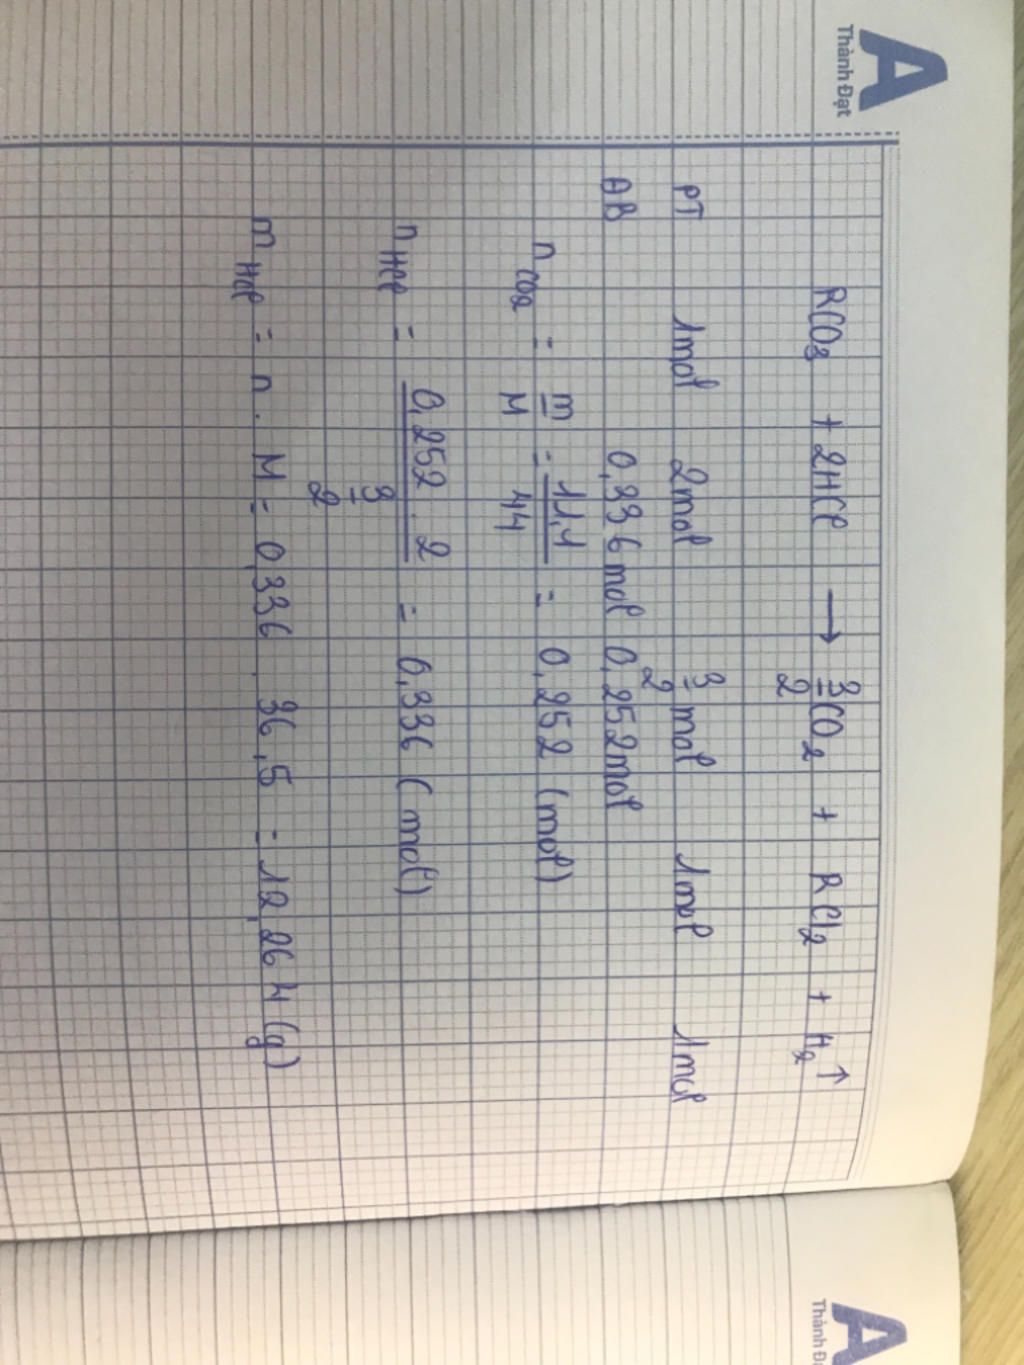 A
Thành Đạt
RCO3 + 2HCl → 3/2 CO2 + RCl2 + H2 ↑
PT 1mol 2mol 3/2 mol 1mol 1mol
AB 0,336mol 0,252mol
nCO2 = m/M = 11,1/44 = 0,252 (mol)
nHCl = 0,252 . 2 / 3/2 = 0,336 (mol)
mHCl = n . M = 0,336 . 36,5 = 12,264 (g)
A
Thành